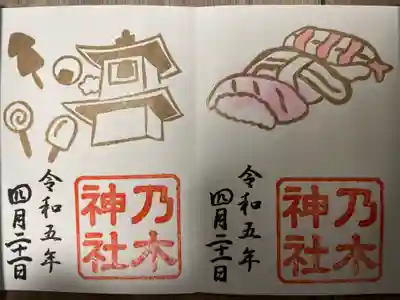 乃木
神社
令和五年
四月二十一日
乃木
神社
令和五年
四月二十一日